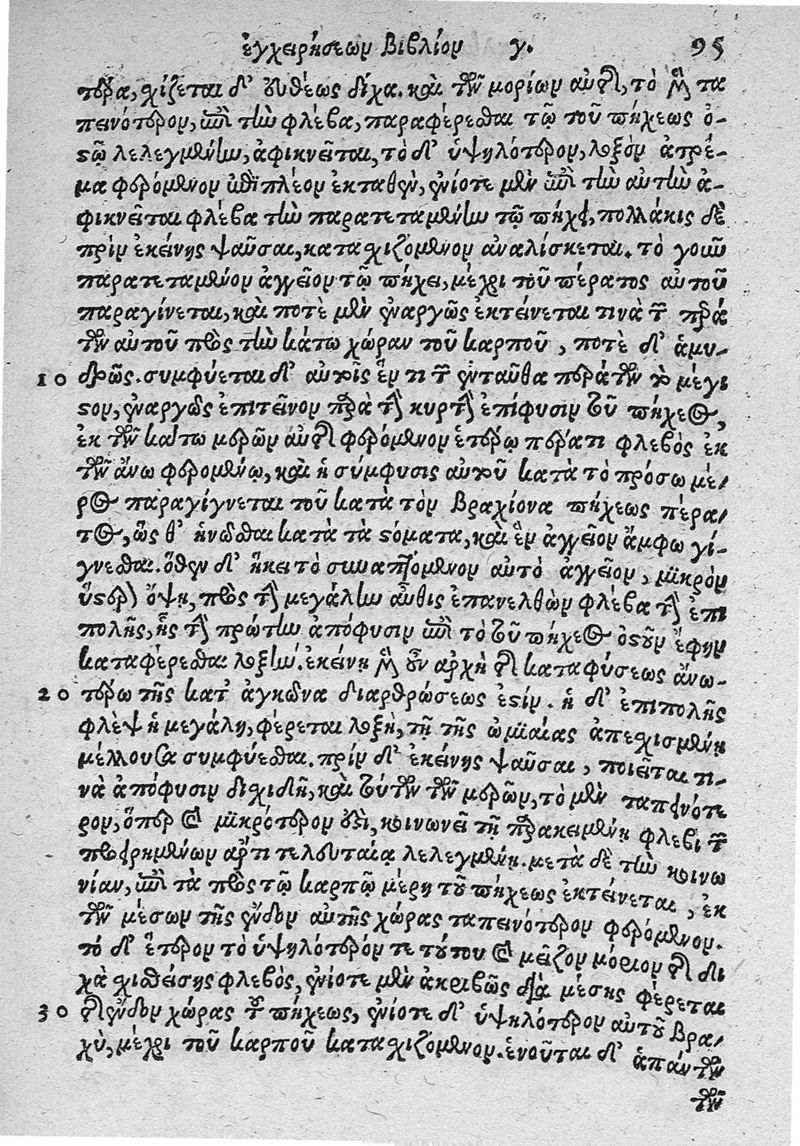 ἐγχειρήσεων βιβλίον γ. 95
τερα, σχίζεται δ' εὐθέως δίχα. καὶ τῶν μορίων αὐτοῦ, τὸ μὲν τα
πεινότερον, ἐπὶ τὴν φλέβα, παραφέρεσθαι τῷ τοῦ πήχεως ὀ-
στῷ λελεγμένην, ἀφικνεῖται, τὸ δ' ὑψηλότερον, λοξὸν ἀτρέ-
μα φερόμενον ἐπιπλέον ἐκταθὲν, ἐνίοτε μὲν ἐπὶ τὴν αὐτὴν ἀ-
φικνεῖται φλέβα τὴν παρατεταμένην τῷ πήχει, πολλάκις δὲ
πρὶν ἐκείνης ψαῦσαι, κατασχιζόμενον ἀναλίσκεται. τὸ γοῦν
παρατεταμένον ἀγγεῖον τῷ πήχει, μέχρι τοῦ πέρατος αὐτοῦ
παραγίνεται, καὶ ποτὲ μὲν ἐναργῶς ἐκτείνεται τινὰ τῶν περά
των αὐτοῦ πρὸς τὴν κάτω χώραν τοῦ καρποῦ, ποτὲ δ' ἀμυ-
10 δρῶς. συμφύεται δ' αὐτοῖς ἕν τι τῶν ἐνταῦθα περάτων τὸ μέγι
στον, ἐναργῶς ἐπιτεῖνον παρὰ τὴν κυρτὴν ἐπίφυσιν τοῦ πήχεος,
ἐκ τῶν κάτω μερῶν αὐτοῦ φερόμενον ἑτέρῳ πέρατι φλεβὸς ἐκ
τῶν ἄνω φερομένῳ, καὶ ἡ σύμφυσις αὐτοῦ κατὰ τὸ πρόσω μέ-
ρος παραγίγνεται τοῦ κατὰ τὸν βραχίονα πήχεως πέρα-
τος, ὥς θ' ἡνῶσθαι κατὰ τὰ στόματα, καὶ ἓν ἀγγεῖον ἄμφω γί-
γνεσθαι. ὅθεν δ' ἥκει τὸ συναπτόμενον αὐτὸ ἀγγεῖον, μικρὸν
ὕστερον ὄψῃ, πρὸς τὴν μεγάλην αὖθις ἐπανελθὼν φλέβα τὴν ἐπι
πολῆς, ἧς τὴν πρώτην ἀπόφυσιν ἐπὶ τὸ τοῦ πήχεος ὀστοῦν ἔφην
καταφέρεσθαι λοξήν. ἐκείνη μὲν οὖν ἀρχὴ τοῦ καταφύσεως ἀνω-
20 τέρω τῆς κατ' ἀγκῶνα διαρθρώσεως ἐστίν. ἡ δ' ἐπιπολῆς
φλὲψ ἡ μεγάλη, φέρεται λοξὴ, τῇ τῆς ὠμιαίας ἀπεσχισμένῃ
μέλλουσα συμφύεσθαι. πρὶν δ' ἐκείνης ψαῦσαι, ποιεῖται τι-
νὰ ἀπόφυσιν δισχιδῆ, καὶ τούτων τῶν μερῶν, τὸ μὲν ταπεινότε
ρον, ὅπερ καὶ μικρότερον ἐστὶ, κοινωνεῖ τῇ παρακειμένῃ φλεβὶ τῶν
προειρημένων ἄρτι τελευταίᾳ λελεγμένῃ. μετὰ δὲ τὴν κοινω
νίαν, ἐπὶ τὰ πρὸς τῷ καρπῷ μέρη τοῦ πήχεως ἐκτείνεται, ἐκ
τῶν μέσων τῆς ἔνδον αὐτῆς χώρας ταπεινότερον φερόμενον.
τὸ δ' ἕτερον τὸ ὑψηλότερόν τε τούτου καὶ μεῖζον μόριον τοῦ δι
χὰ σχισθείσης φλεβὸς, ἐνίοτε μὲν ἀκριβῶς διὰ μέσης φέρεται
30 τῆς ἔνδον χώρας τοῦ πήχεως, ἐνίοτε δ' ὑψηλότερον αὐτοῦ βρα-
χὺ, μέχρι τοῦ καρποῦ κατασχιζόμενον. ἑνοῦται δ' ἁπάντων
τῶν